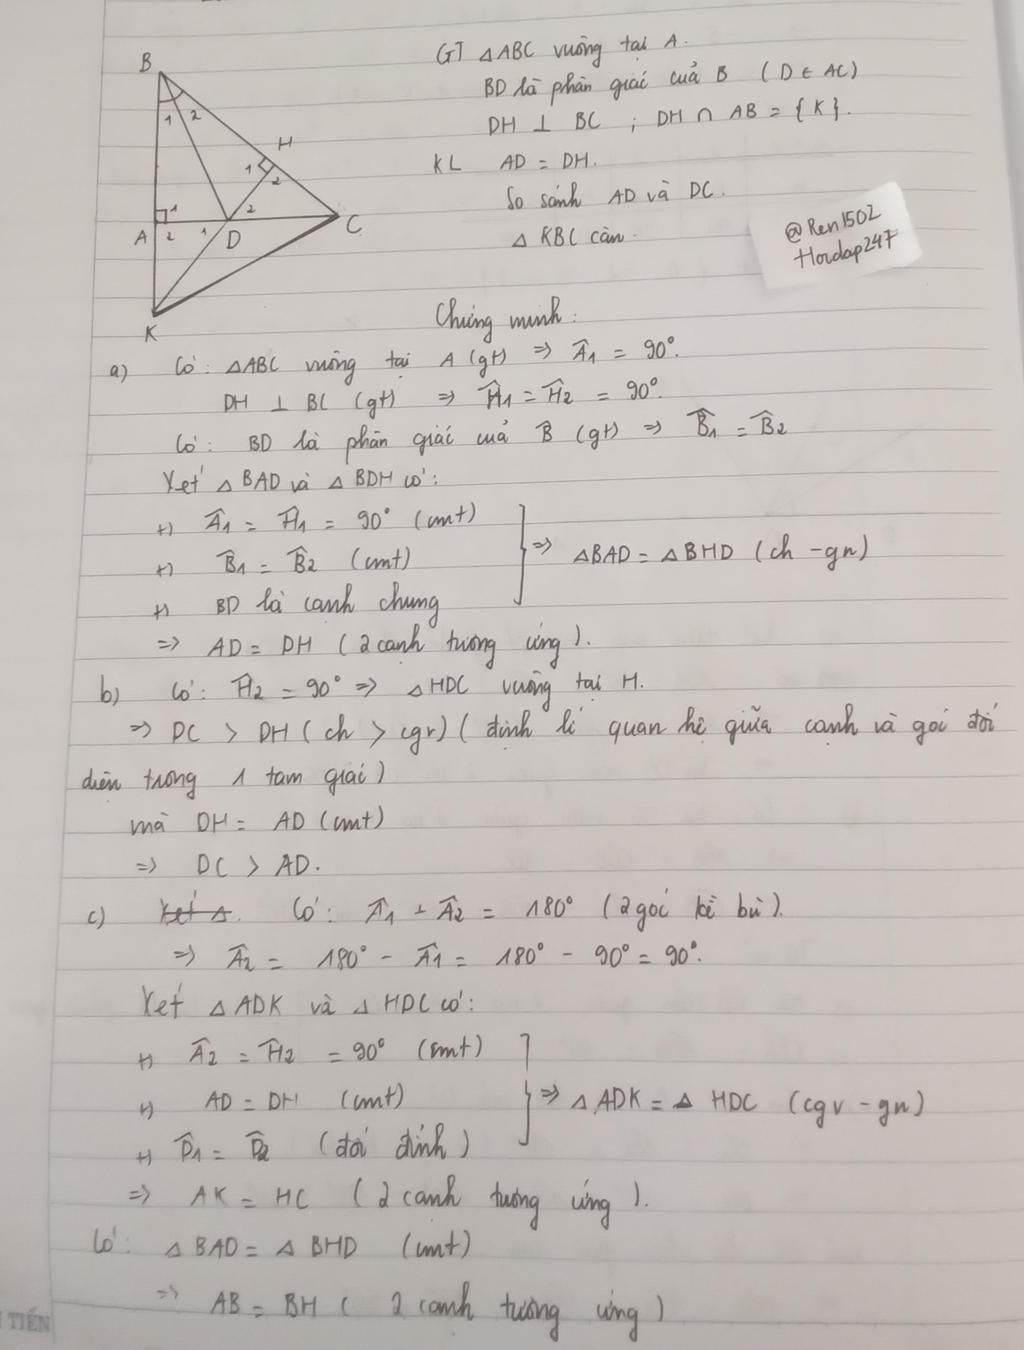 GT △ABC vuông tại A.
BD là phân giác của B (D ∈ AC)
DH ⊥ BC ; DH ∩ AB = {K}.
KL AD = DH.
So sánh AD và DC.
△ KBC cân.
@Ren1502
Hoidap247
B
1 2
H
1
2
1
2
A
2
1
D
C
K
Chứng minh:
a) Có: △ABC vuông tại A (gt) => Â1 = 90°.
DH ⊥ BC (gt) => Ĥ1 = Ĥ2 = 90°.
Có: BD là phân giác của B̂ (gt) => B̂1 = B̂2
Xét △BAD và △BDH có:
+) Â1 = Ĥ1 = 90° (cmt)
+) B̂1 = B̂2 (cmt)
+) BD là cạnh chung
=> △BAD = △BHD (ch - gn)
=> AD = DH (2 cạnh tương ứng).
b) Có: Ĥ2 = 90° => △HDC vuông tại H.
=> DC > DH (ch > cgv) (định lí quan hệ giữa cạnh và góc đối
diện trong 1 tam giác)
mà DH = AD (cmt)
=> DC > AD.
c) Xét △. Có: Â1 + Â2 = 180° (2 góc kề bù).
=> Â2 = 180° - Â1 = 180° - 90° = 90°.
Xét △ADK và △HDC có:
+) Â2 = Ĥ2 = 90° (cmt)
+) AD = DH (cmt)
+) D̂1 = D̂2 (đối đỉnh)
=> △ADK = △HDC (cgv - gn)
=> AK = HC (2 cạnh tương ứng).
Có: △BAD = △BHD (cmt)
=> AB = BH (2 cạnh tương ứng)
TIẾN